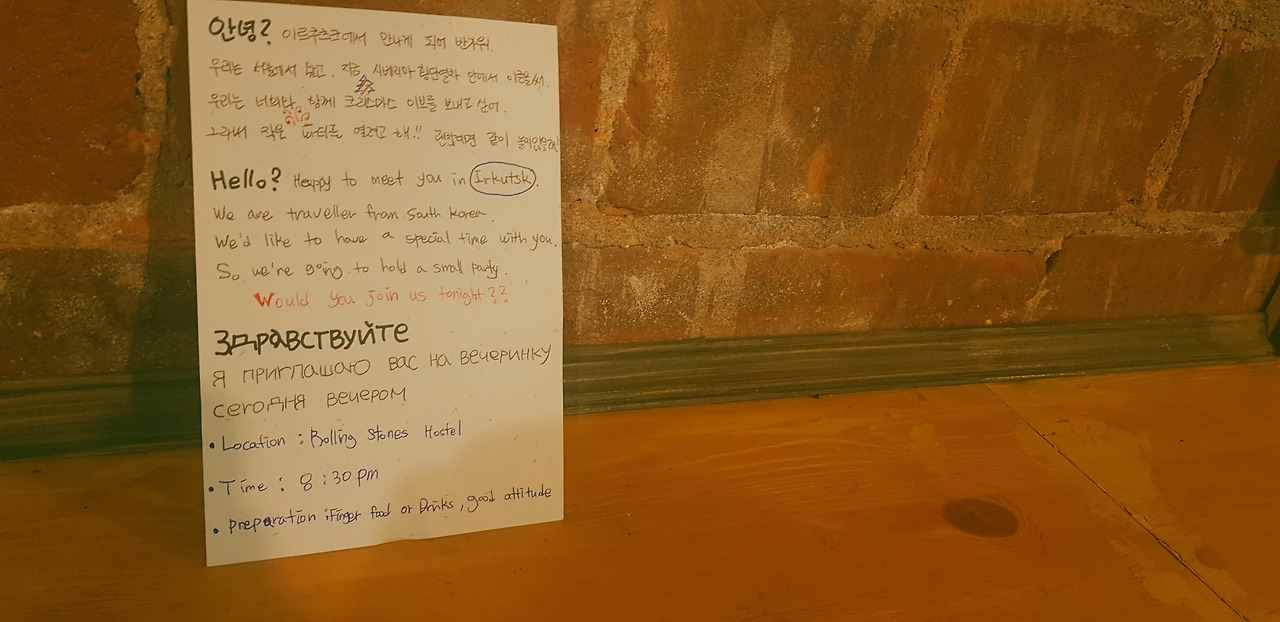 안녕? 이르쿠츠크에서 만나게 되어 반가워.
우리는 서울에서 왔고, 지금 시베리아 횡단열차 안에서 이 글을 써.
우리는 너희와 함께 크리스마스 이브를 보내고 싶어.
그래서 작은 파티를 열려고 해!! 괜찮다면 같이
Hello? Happy to meet you in Irkutsk.
We are traveller from South Korea.
We'd like to have a special time with you.
So we're going to hold a small party.
Would you join us tonight??
Здравствуйте
я приглашаю вас на вечеринку
сегодня вечером
• Location : Rolling Stones Hostel
• Time : 8:30 pm
• preparation : Finger food or Drinks, good attitude